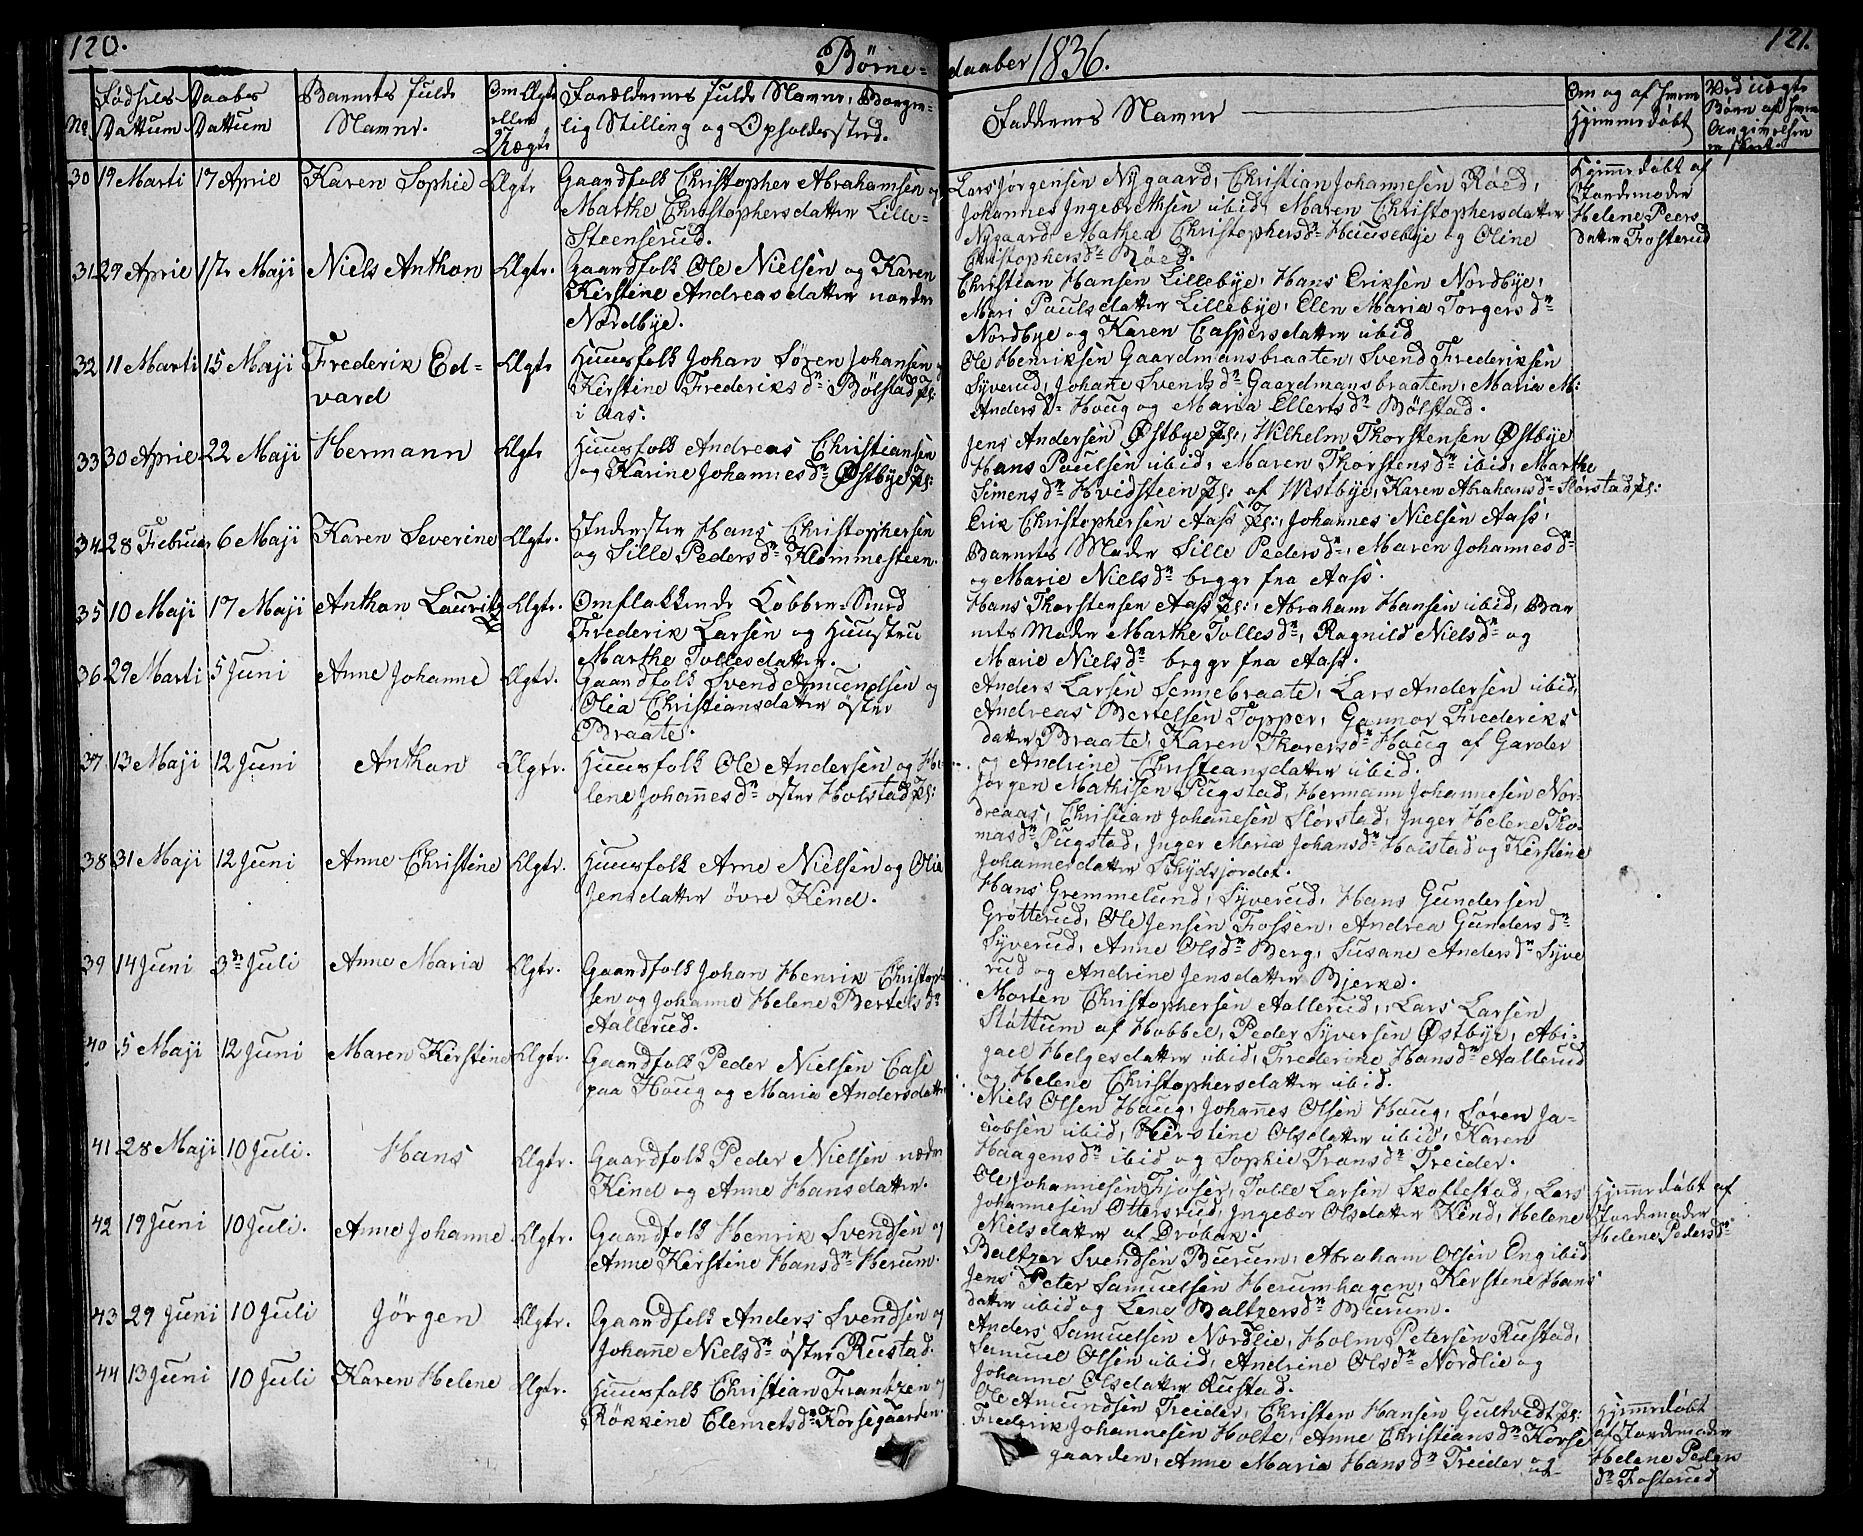 120.
Børne-
daaber 1836.
121.
No
Fødsels Dattum
Daabs Dattum
Barnets fulde Navne.
Om Ægte eller Uægte
Forældrenes fulde Navne, Borger-
lig Stilling og Opholdssted.
Faddernes Navne
Om og af hvem Hjemmedøbt
Ved uægte Børn af hvem Angivelsen er skeet.
30 19 Marti 17 Aprie Karen Sophie Ægte
Gaardfolk Christopher Abrahamsen og
Marthe Christophersdatter Lille-
Steenserud.
Lars Jørgensen Nygaard, Christian Johannesen Røed,
Johannes Ingebrethsen ibid, Maren Christophersdatter
Nygaard, Mathea Christophersdr Huusebye og Oline
Christophersdr Røed.
Hjemmedøbt af
Jordemoder
Helene Peers
datter Fosterud
31 29 Aprie 1ste Maji Niels Anthon Ægte.
Gaardfolk Ole Nielsen og Karen
Kirstine Andreasdatter nordre
Nordbye.
Christian Hansen Lillebye, Hans Eriksen Nordbye,
Mari Poulsdatter Lillebye, Ellen Maria Torgersdr
Nordbye og Karen Caspersdatter ibid
32 11 Marti 15 Maji Frederik Ed-
vard Ægte
Huusfolk Johan Søren Johansen og
Kirstine Fredriksdr Bølstad Pl:
i Aas.
Ole Henriksen Gaardmansbraaten, Svend Frederiksen
Syverud, Johane Svendsdr Gaardmansbraaten, Maria M:
Andersdr Houg og Maria Ellertsdr Bølstad.
33 30 Aprie 22 Maji Hermann Ægte
Huusfolk Andreas Christiansen
og Karine Johannesdr Østbye Pl:
Jens Andersen Østbye Pl:, Wilhelm Thorstensen Østbye
Hans Poulsen ibid, Maren Thorstensdr ibid, Marthe
Simensdr Hvidsteen Pl: af Westbye, Karen Abrahansdr Slørstad Pl:
34 28 Februar 6 Maji Karen Severine Ægte.
Inderster Hans Christophersen
og Sille Pedersdr Klommesteen.
Erik Christophersen Aass Pl:, Johannes Nielsen Aass,
Barnets Moder Sille Pedersdr, Maren Johannesdr
og Marie Nielsdr begge fra Aass.
35 10 Maji 17 Maji Anthon Lauritz Ægte.
Omflakkende Kobber-Smed
Frederik Larsen og Huustru
Marthe Tollesdatter.
Hans Thorstensen Aass Pl:, Abraham Hansen ibid, Bar
nets Moder Marthe Tollesdr, Ragnild Nielsdr og
Marie Nielsdr begge fra Aass.
36 29 Marti 5 Juni Anne Johanne Ægte.
Gaardfolk Svend Amundsen og
Olia Christiansdatter øster
Braate.
Anders Larsen Sennebraate, Lars Andersen ibid,
Andreas Bertelsen Topper, Gunnor Frederiks
datter Braate, Karen Thorersdr Houg af Garder
og Andrine Christiansdatter ibid.
37 13 Maji 12 Juni Anthon Ægte.
Huusfolk Ole Andersen og He-
lene Johannesdr øster Holstad Pl:
Jørgen Mathisen Pugstad, Hermann Johannesen Nor-
dreaas, Christian Johannesen Slørstad, Inger Helene Tho-
masdr Pugstad, Inger Maria Johansdr Holstad og Kirstine
Johannesdatter Skydsjordet.
38 31 Maji 12 Juni Anne Christine Ægte.
Huusfolk Arne Nielsen og Olia
Jensdatter øvre Kind.
Hans Gremmelund, Syverud, Hans Gundersen
Grøtterud, Ole Jensen Fossen, Andrea Gundersdr
Syverud, Anne Olsdr Berg, Susane Andersdr Syve
rud og Andrine Jensdatter Bjerke.
39 14 Juni 3de Juli Anne Maria Ægte.
Gaardfolk Johan Henrik Christoph-
sen og Johanne Helene Bertelsdr
Aallerud.
Morten Christophersen Aallerud, Lars Larsen
Støttum af Hobbel, Peder Syversen Østbye, Abi-
gael Helgesdatter ibid, Frederikke Hansdr Aallerud
og Helene Christophersdatter ibid.
40 5 Maji 12 Juni Maren Kirstine Ægte.
Gaardfolk Peder Nielsen Case
paa Houg og Maria Andersdatter
Niels Olsen Haug, Johannes Olsen Haug, Søren Ja-
cobsen ibid, Kirstine Olsdatter ibid, Karen
Haagensdr ibid og Sophie Fransdr Treider.
41 28 Maji 10 Juli. Hans Ægte.
Gaardfolk Peder Nielsen nedre
Kind og Anne Hansdatter.
Ole Johannesen Fjøser, Tolle Larsen Skottestad, Lars
Johannesen Ottersrud, Ingebor Olsdatter Kind, Helene
Nielsdatter af Drøbak.
Hjemmedøbt af
Jordemoder
Helene Pedersdr
42 19 Juni 10 Juli. Anne Johanne Ægte.
Gaardfolk Henrik Svendsen og
Anne Kirstine Hansdr Herum.
Baltzer Svendsen Burum, Abraham Olsen Eng ibid
Jens Peter Samuelsen Herumhagen, Kirstene Hans
datter ibid og Lene Baltzersdr Burum.
43 29 Juni 10 Juli Jörgen Ægte.
Gaardfolk Anders Svendsen og
Johanne Nielsdr øster Rustad.
Anders Samuelsen Nordlie, Holm Petersen Rustad,
Samuel Olsen ibid, Andrine Olsdr Nordlie og
Johanne Olsdatter Rustad.
44 13 Juni 10 Juli Karen Helene Ægte.
Huusfolk Christian Frantzen og
Røkkine Clemetsdr Korsegaarden.
Ole Amundsen Treider, Christen Hansen Gultvedt Pl:
Frederik Johannesen Holte, Anne Christiansdr Korse
gaarden, Anne Maria Hansdr Treider og
Hjemmedøbt
af Jordemoder
Helene Peders
dr Fosterud